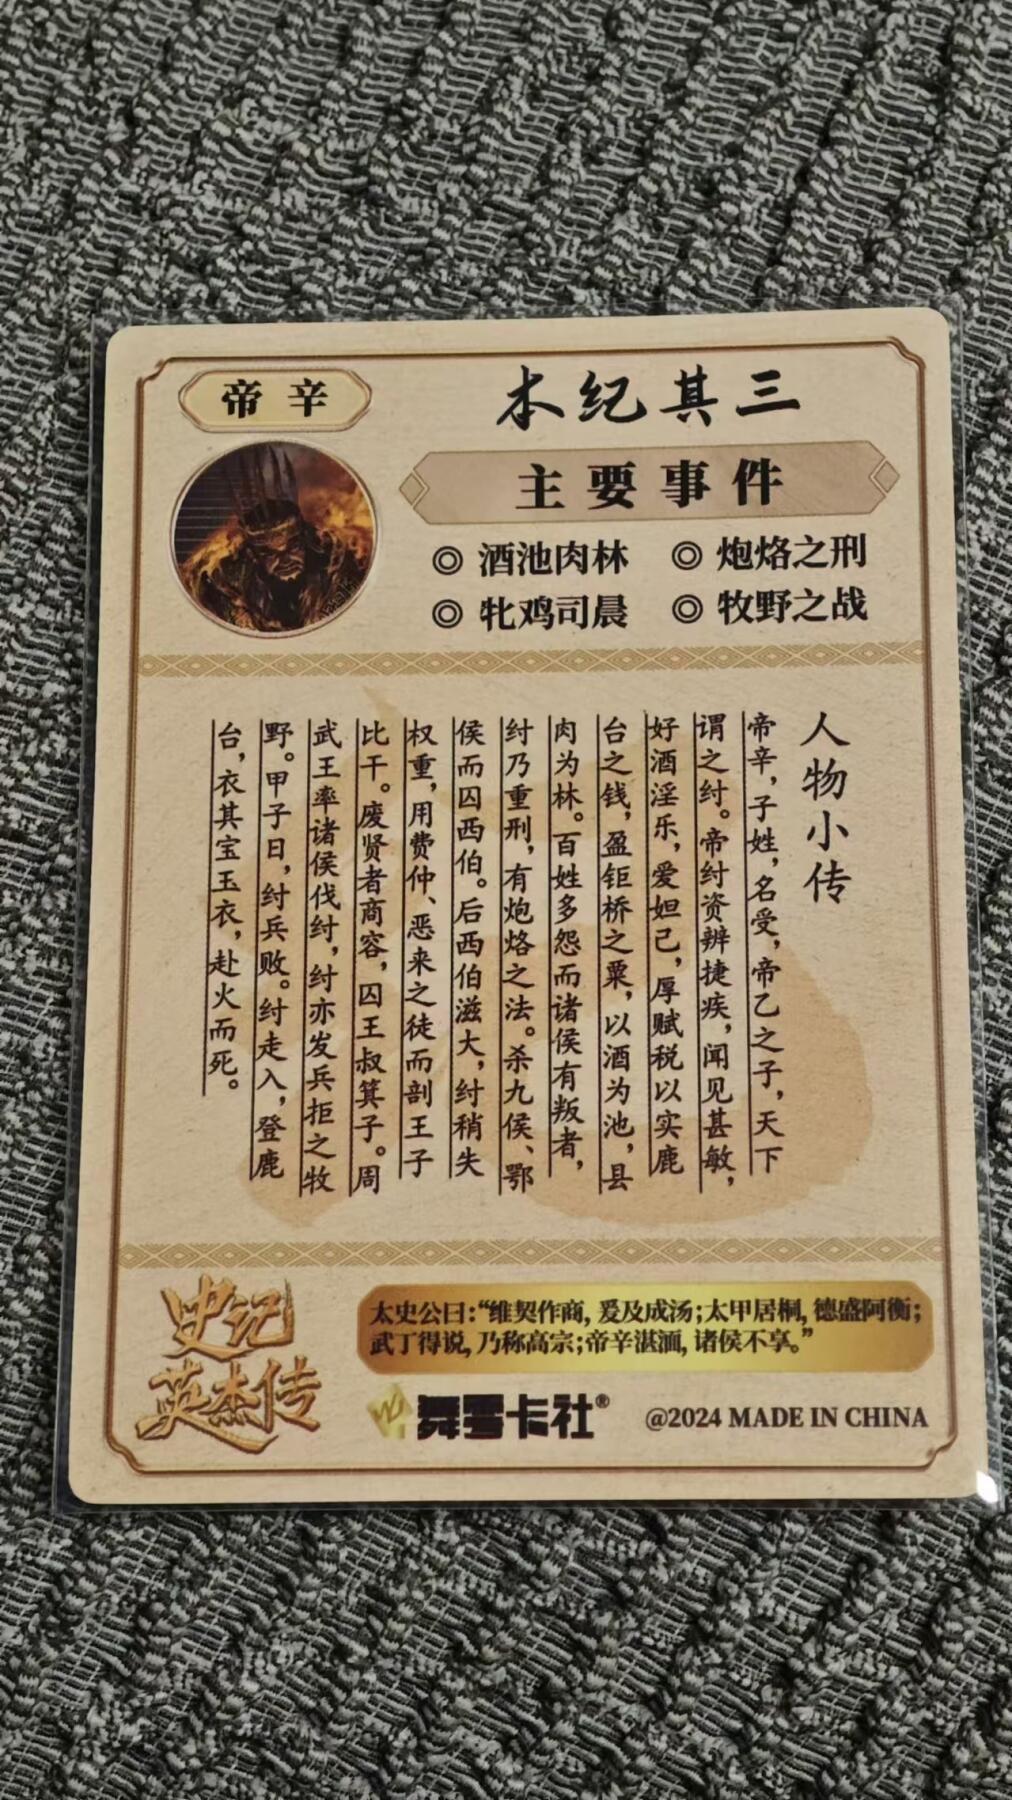 帝辛
本纪其三
主要事件
◎ 酒池肉林 ◎ 炮烙之刑
◎ 牝鸡司晨 ◎ 牧野之战
人物小传
帝辛，子姓，名受，帝乙之子，天下
谓之纣。帝纣资辨捷疾，闻见甚敏，
好酒淫乐，爱妲己，厚赋税以实鹿
台之钱，盈钜桥之粟，以酒为池，县
肉为林。百姓多怨而诸侯有叛者，
纣乃重刑，有炮烙之法。杀九侯、鄂
侯而囚西伯。后西伯滋大，纣稍失
权重，用费仲、恶来之徒而剖王子
比干。废贤者商容，囚王叔箕子。周
武王率诸侯伐纣，纣亦发兵拒之牧
野。甲子日，纣兵败。纣走入，登鹿
台，衣其宝玉衣，赴火而死。
史记
英杰传
太史公曰：“维契作商，爰及成汤；太甲居桐，德盛阿衡；
武丁得说，乃称高宗；帝辛湛湎，诸侯不享。”
舞雩卡社®
@2024 MADE IN CHINA